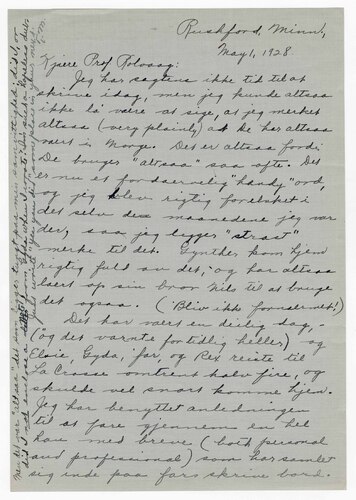 Rushford, Minn,
May 1, 1928
Kjære Prof Rolvaag:
Jeg har sagtens ikke tid til at
skrive idag, men jeg kunde altsaa
ikke la' være at sige, at jeg merket
altsaa (very plainly) at De har altsaa
vært i Norge. Det er altsaa fordi
De bruger "altsaa" saa ofte. Det
er nu et fordaervelig "handy" ord,
og jeg blev rigtig forelsket i
det selv de maanedene jeg var
der, saa jeg legger "strast"
merke til det. Gynther kom hjem
rigtig fuld av det, og har altsaa
laert op sin bror Nils til at bruge
det ogsaa. (Bliv ikke fornærmet!)
Det har vært en deilig dag,
(og det varnte for tidlig heller) og
Elsie, Gyda, far, og Rex reiste til
La Crosse omtrent halv fire, og
skulde vel snart komme hjem.
Jeg har benyttet anledningen
til at fare gjennem en hel
hau med breve (both personal
and professional) som har samlet
sig inde paa far skrive bord.